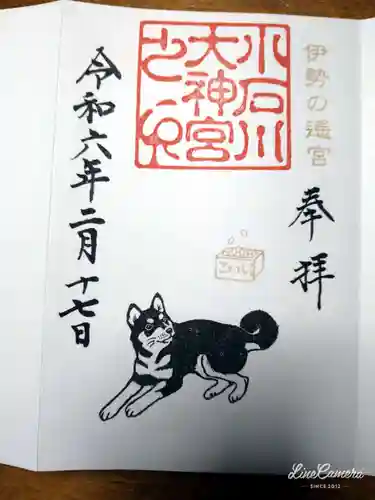 伊勢の遥宮
奉拝
小石川
大神宮
之印
令和六年二月十七日
LineCamera
SINCE 2012